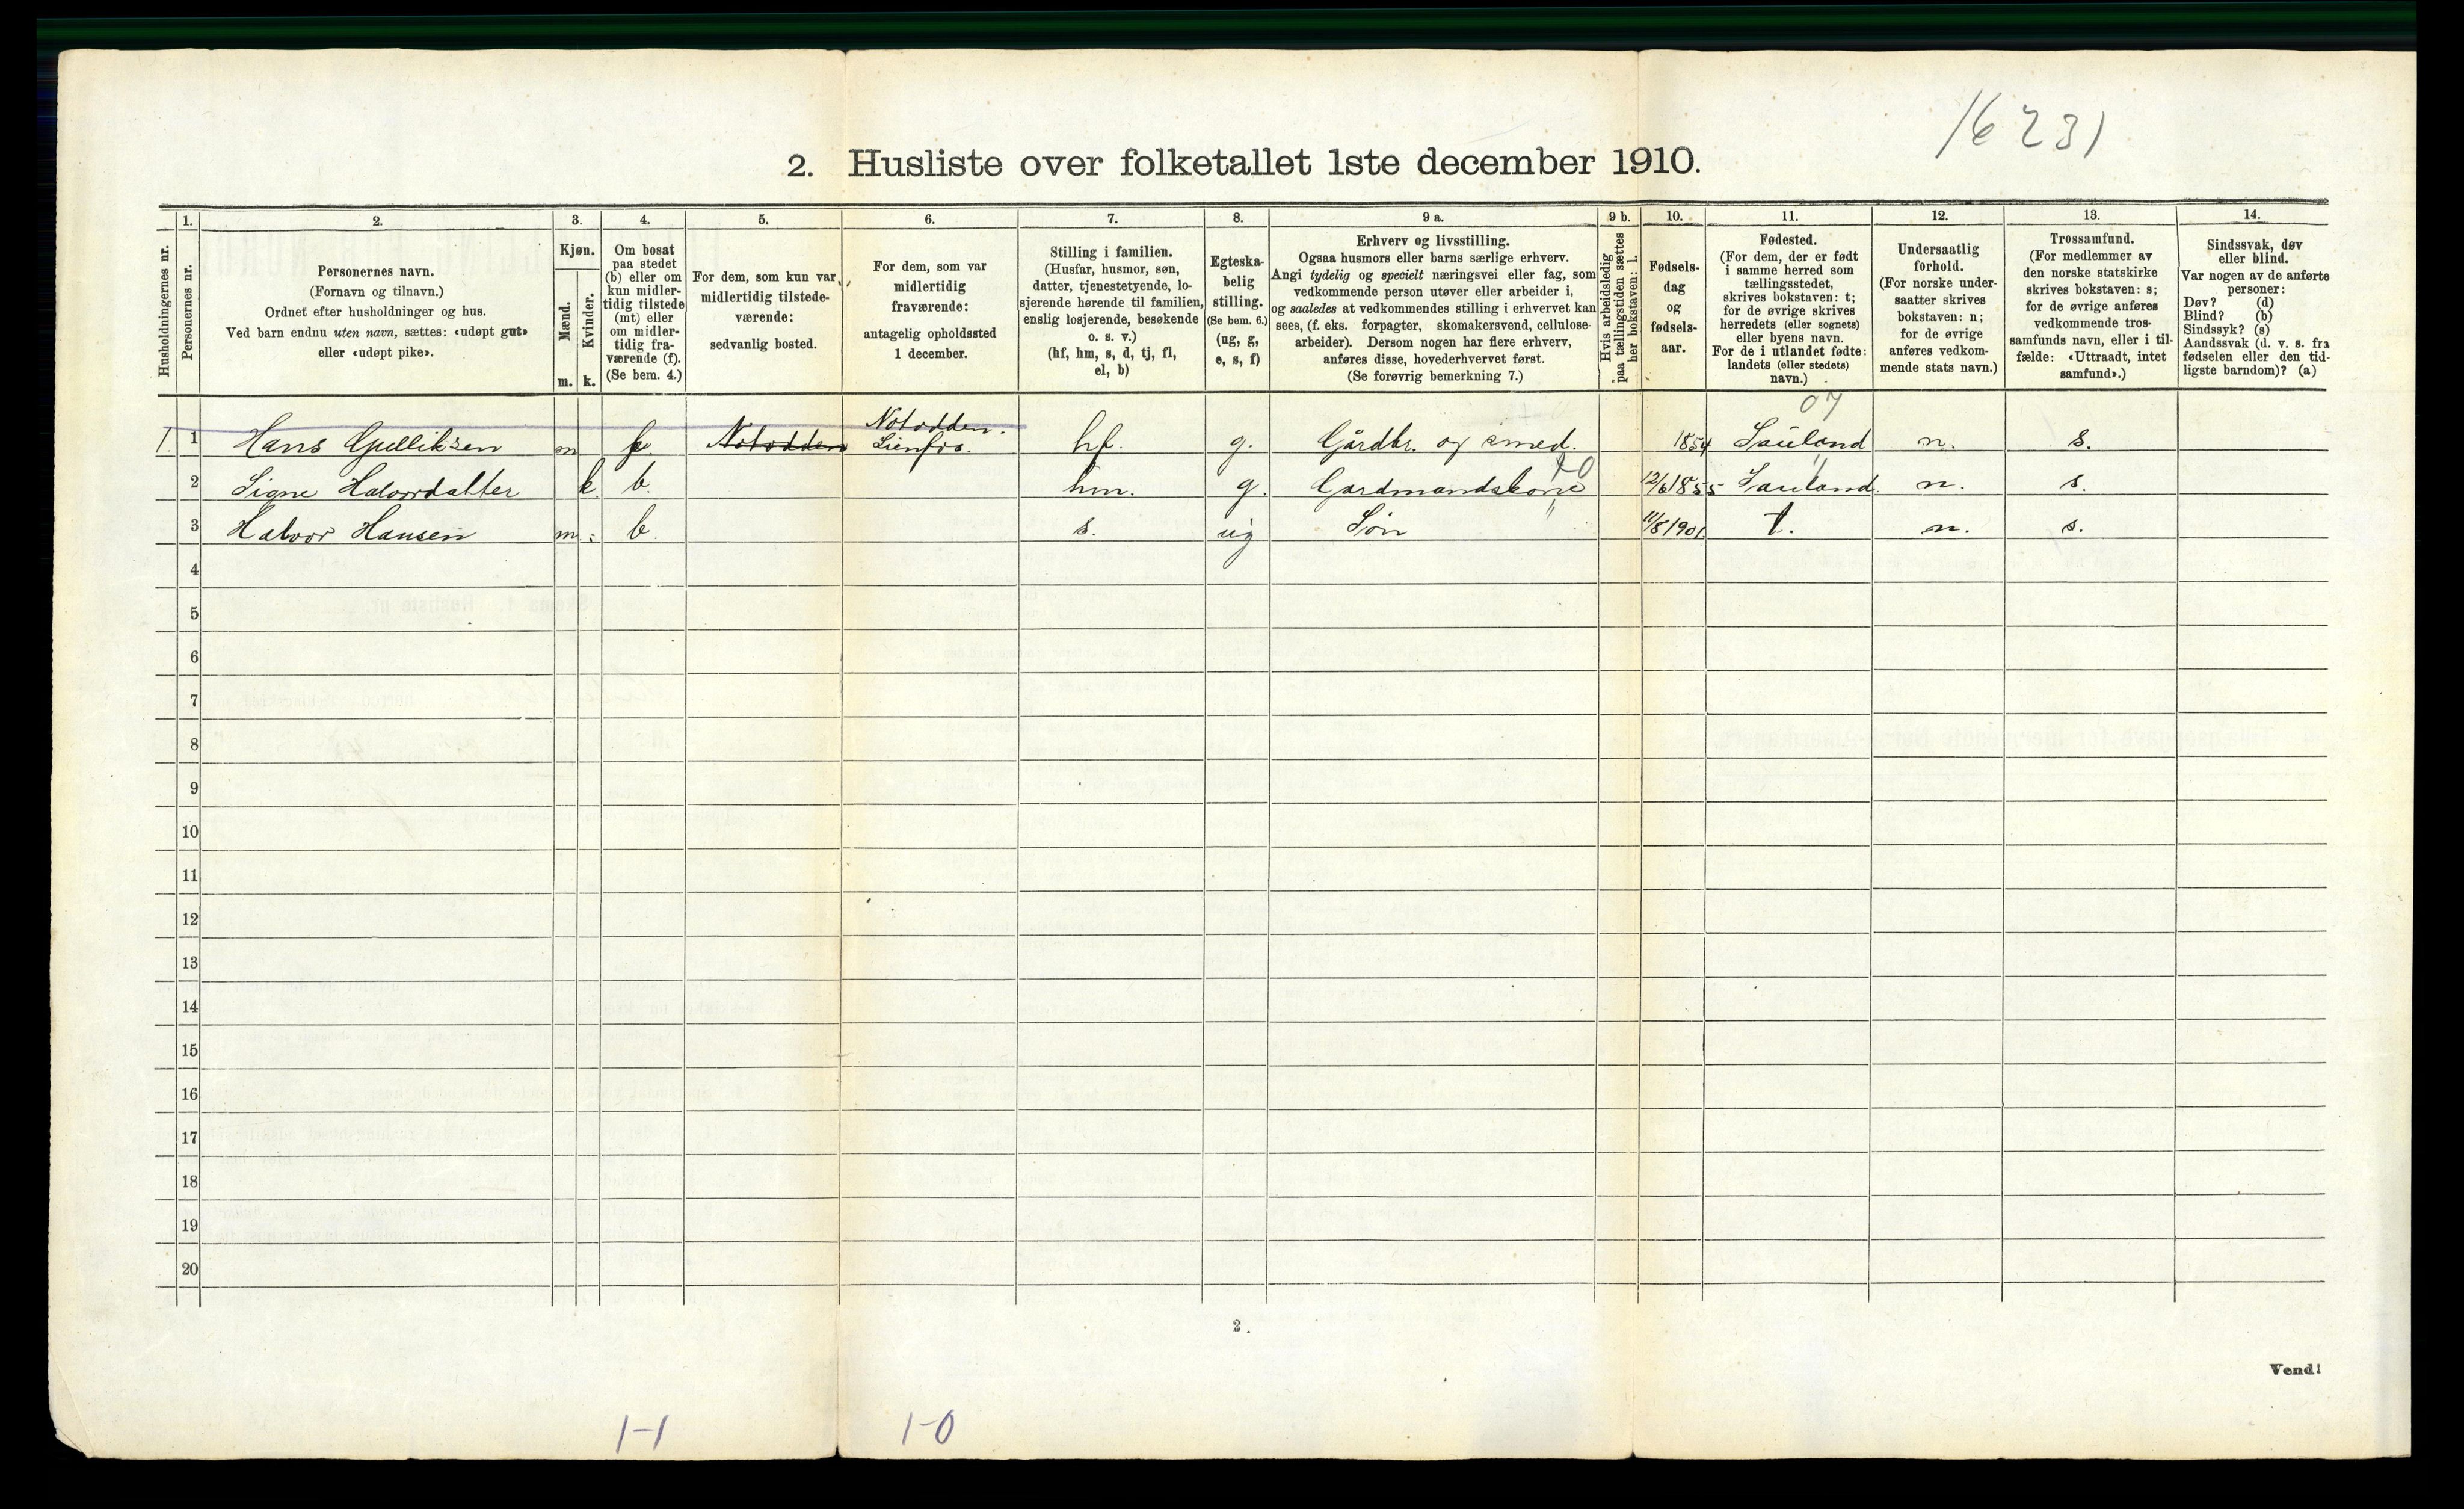 16231
2. Husliste over folketallet 1ste december 1910.
Husholdningernes nr.
1.
Personernes nr.
2.
Personernes navn.
(Fornavn og tilnavn.)
Ordnet efter husholdninger og hus.
Ved barn endnu uten navn, sættes: «udøpt gut»
eller «udøpt pike».
3.
Kjøn.
Mænd.
Kvinder.
m. k.
4.
Om bosat
paa stedet
(b) eller om
kun midler-
tidig tilstede
(mt) eller
om midler-
tidig fra-
værende (f).
(Se bem. 4.)
5.
For dem, som kun var
midlertidig tilstede-
værende:
sedvanlig bosted.
6.
For dem, som var
midlertidig
fraværende:
antagelig opholdssted
1 december.
7.
Stilling i familien.
(Husfar, husmor, søn,
datter, tjenestetyende, lo-
sjerende hørende til familien,
enslig losjerende, besøkende
o. s. v.)
(hf, hm, s, d, tj, fl,
el, b)
8.
Egteska-
belig
stilling.
(Se bem. 6.)
(ug, g,
e, s, f)
9 a.
Erhverv og livsstilling.
Ogsaa husmors eller barns særlige erhverv.
Angi tydelig og specielt næringsvei eller fag, som
vedkommende person utøver eller arbeider i,
og saaledes at vedkommendes stilling i erhvervet kan
sees, (f. eks. forpagter, skomakersvend, cellulose-
arbeider). Dersom nogen har flere erhverv,
anføres disse, hovederhvervet først.
(Se forøvrig bemerkning 7.)
9 b.
Hvis arbeidsledig
paa tællingstiden sættes
her bokstaven: l.
10.
Fødsels-
dag
og
fødsels-
aar.
11.
Fødested.
(For dem, der er født
i samme herred som
tællingsstedet,
skrives bokstaven: t;
for de øvrige skrives
herredets (eller sognets)
eller byens navn.
For de i utlandet fødte:
landets (eller stedets)
navn.)
12.
Undersaatlig
forhold.
(For norske under-
saatter skrives
bokstaven: n;
for de øvrige
anføres vedkom-
mende stats navn.)
13.
Trossamfund.
(For medlemmer av
den norske statskirke
skrives bokstaven: s;
for de øvrige anføres
vedkommende tros-
samfunds navn, eller i til-
fælde: «Uttraadt, intet
samfund».)
14.
Sindssvak, døv
eller blind.
Var nogen av de anførte
personer:
Døv? (d)
Blind? (b)
Sindssyk? (s)
Aandssvak (d. v. s. fra
fødselen eller den tid-
ligste barndom)? (a)
07
Notodden.
1. 1 Hans Gulliksen m f Notodden Lienfos. hf. g. Gårdbr. og smed. 1854 Sauland n. s.
2 Signe Halvordatter k b. hm. g. Gardmandskone 12/6 1855 Sauland. n. s.
3 Halvor Hansen m. b. s. ug Søn 11/8 1901 t. n. s.
4
5
6
7
8
9
10
11
12
13
14
15
16
17
18
19
20
2
Vend!
1-1 1-0